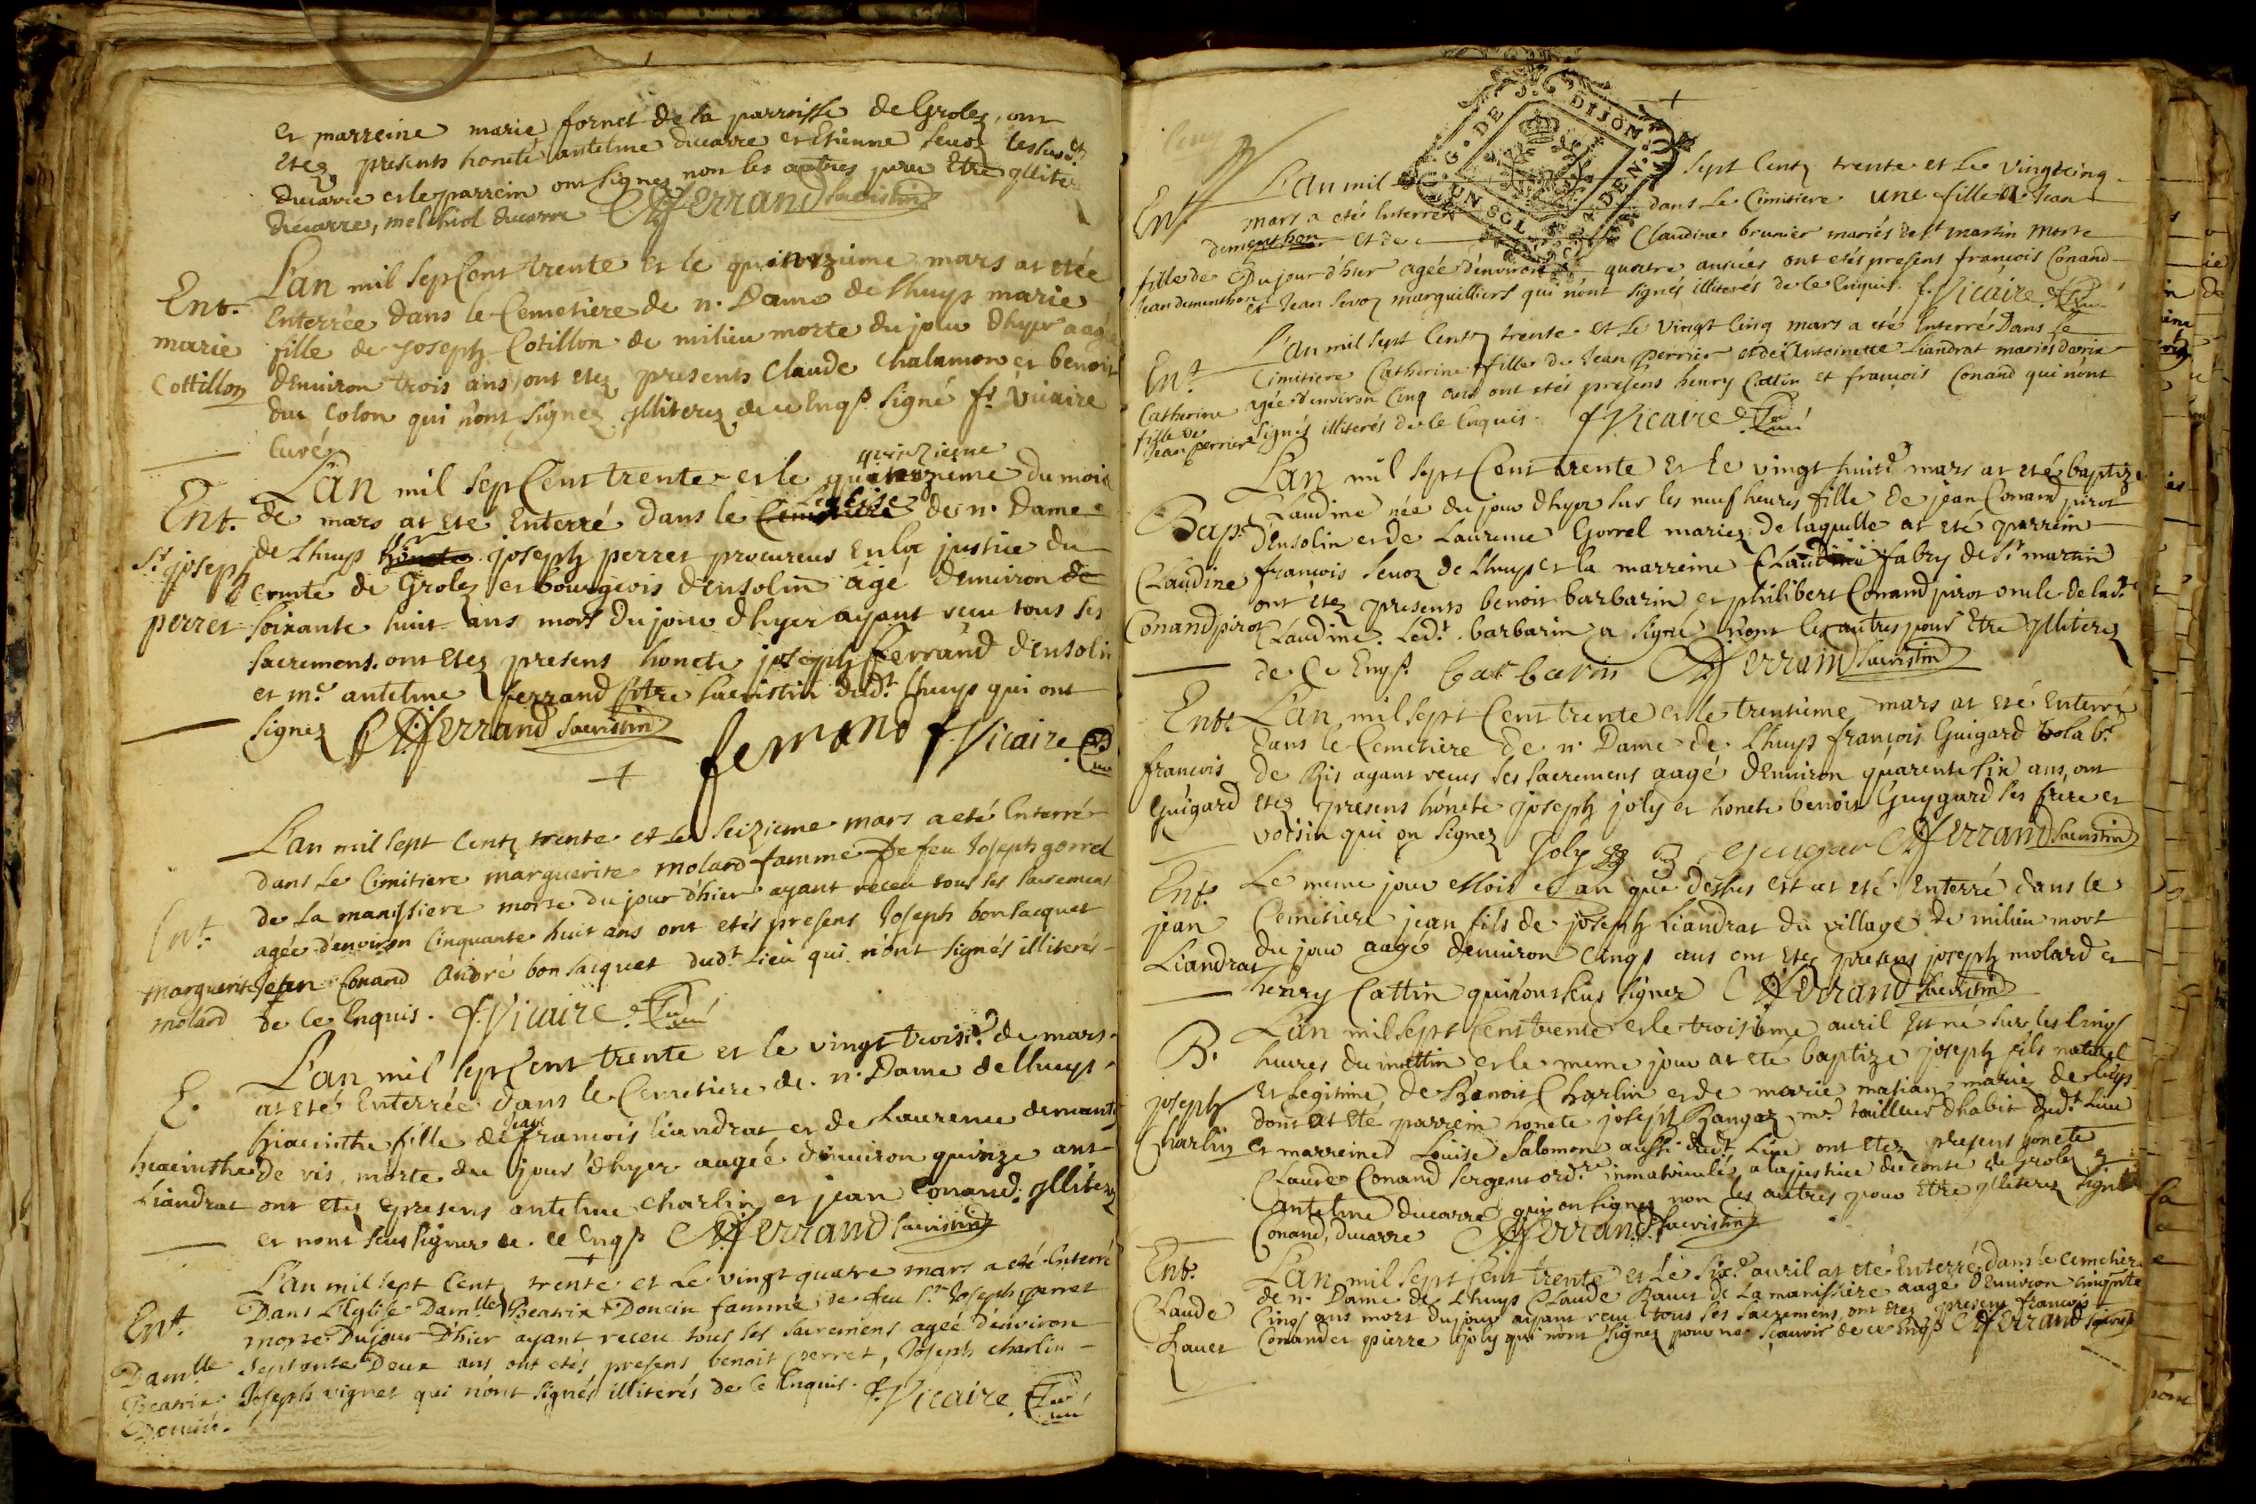 et marreine marie fornet de la parroisse de Grolez, ont
etez presents honete antelme ducarre et Etienne Seuoz lesusd.t
ducarre et le parrein ont signez non les autres pour Etre ylliter
ducarre, melchiol ducarre Ferrand sacristin
L'an mil sept Cent trente et le quinzieme mars at etée
Ent. Enterrée dans le Cemetiere de n. Dame de Lhuys marie
marie fille de Joseph Cotillon de milieu morte du jour d'hyer aagée
Cottillon d'Enuiron trois ans ont etez presents Claude Chalamon et benoit
duc Colon qui n'ont signez ylliterez de ce Enq.s signé fr Vicaire
Curé
quinzieme
L'an mil sept Cent trente et le du mois
Ent. de mars at eté Enterré dans le Leglise de n. Dame
S.r joseph de Lhuys joseph perret procureur en la justice du
Comté de Grolez et bourgeois d'Ensolin âgé d'Enuiron de
perret soixante huit ans mort du jour d'hyer ayant reçu tous ses
sacremens. ont Etez presens honete joseph Ferrand d'Ensolin
et m.e antelme ferrand sacristin dud.t Lhuys qui ont
signez Ferrand sacristin ferrand f. Vicaire Curé
L'an mil sept Centz trente et le seizieme mars a eté Enterré
dans Le Cimitiere marguerite molard famme De feu Joseph gorrel
de La manissiere morte du jour d'hier ayant receu tous ses sacremens
Ent. agée d'environ Cinquante huit ans ont etés presens Joseph bonSacquet
Marguerite Jean Conand André bonSacquet dud.t Lieu qui n'ont signés illiterés
molard de Ce Enquis. f. Vicaire Curé
L'an mil sept Cent trente et le vingt troisi.e de mars
E. at eté Enterrée dans le Cemetiere de n. Dame de lhuys
hiacinthe fille de françois Liandrat et de Laurence
hiacinthe de vis morte du jour d'hyer aagée d'Enuiron quinze ans
Liandrat ont etez presens antelme Charlin et jean Conand ylliterez
et n'ont sceu signer de ce Enq.s Ferrand sacristin
L'an mil sept Centz trente et Le vingt quatre mars a eté Enterré
Ent. Dans L'Eglise Dam.lle Beatrix Doncin famme de feu S.r Joseph perret
morte Du jour D'hier ayant receu tous ses sacremens agée d'environ
Dam.lle septante Deux ans ont etés presens benoit perret, Joseph charlin
Beatrix Joseph vignet qui n'ont signés illiterés de Ce Enquis. f. Vicaire Curé
Doncin.
G. DE DIJON
UN SOL
L'an mil sept Centz trente et Le Vingt cinq
Ent. mars a eté Enterrée dans Le Cimitiere une fille a Jean
dementhon et de Claudine brunier mariés de S.t martin morte
fille de Du jour d'hier agée d'environ quatre années ont etés present francois Conand
Jean dementhon et Jean Sevoz marguilliers qui n'ont signés illiterés de Ce Enquis. f. Vicaire Curé
L'an mil sept Centz trente et Le Vingt Cinq mars a eté Enterré Dans Le
Ent. Cimitiere Catherine fille de Jean perrier et de Antoinette Liandrat mariés
Catherine agée d'environ Cinq ans ont etés presens henry Cattin et francois Conand qui n'ont
fille de signés illiterés de Ce Enquis. f. Vicaire Curé
Jean perrier
L'an mil sept Cent trente et Le vingt huit.e mars at eté baptizé
Bap. Claudine née du jour d'hyer sur les neuf heures fille de jean Conand pirot
d'Ensolin et de Laurence Gorrel mariez de laquelle at eté parrein
Claudine francois Seuoz de Lhuys et la marreine Claudine fabry de S.t martin
ont etez presents benoit barbarin et philibert Conand pirot oncle de lad.te
Conand pirot Claudine. Led.t barbarin a signé non les autres pour Etre ylliterez
de Ce Enq.s barbarin Ferrand sacristin
Ent. L'an mil sept Cent trente et le trentieme mars at eté Enterré
dans le Cemetiere de n. Dame de Lhuys françois Guigard lab.r
francois de Ris ayant recus ses sacremens aagé d'Enuiron quarente six ans, ont
Guigard etez presens honete joseph joly et honete benoit Guygard ses frere et
voisin qui on signez Joly Ferrand sacristin
Ent. Le meme jour mois et an que dessus at eté Enterré dans le
jean Cemetiere jean fils de joseph Liandrat du village de milieu mort
Liandrat du jour aagé d'enuiron Cinqs ans ont etez presens joseph molard et
henry Cattin qui n'ont sceus signer Ferrand sacristin
L'an mil sept Cent trente et le troisieme auril Est né sur les Cinqs
B. heures du mattin et le meme jour at eté baptizé joseph fils naturel
joseph Et Legitime de Benoit Charlin et de marie matian mariez de lhuys
dont at eté parrein honete joseph m.e tailleur d'habit dud.t Lieu
Charlin et marreine Louise Salomon aussi dud.t Lieu ont etez present honete
Claude Conand sergent ord.re immatriculé a la justice du comté de grolez et
Antelme ducarre qui on signez non les autres pour etre ylliterez signé
Conand, ducarre Ferrand sacristin
Ent. L'an mil sept cent trente et Le six.e auril at eté Enterré dans le cemetiere
Claude de n. Dame de Lhuys Claude Rauet de La manissiere aagé d'Enuiron cinquante
Cinqs ans mort du jour ayant recu tous ses sacremens ont etez presens francois
Rauet Conand et pierre joly qui n'ont signez pour ne sçauoir de ce Enq.s Ferrand sacristin